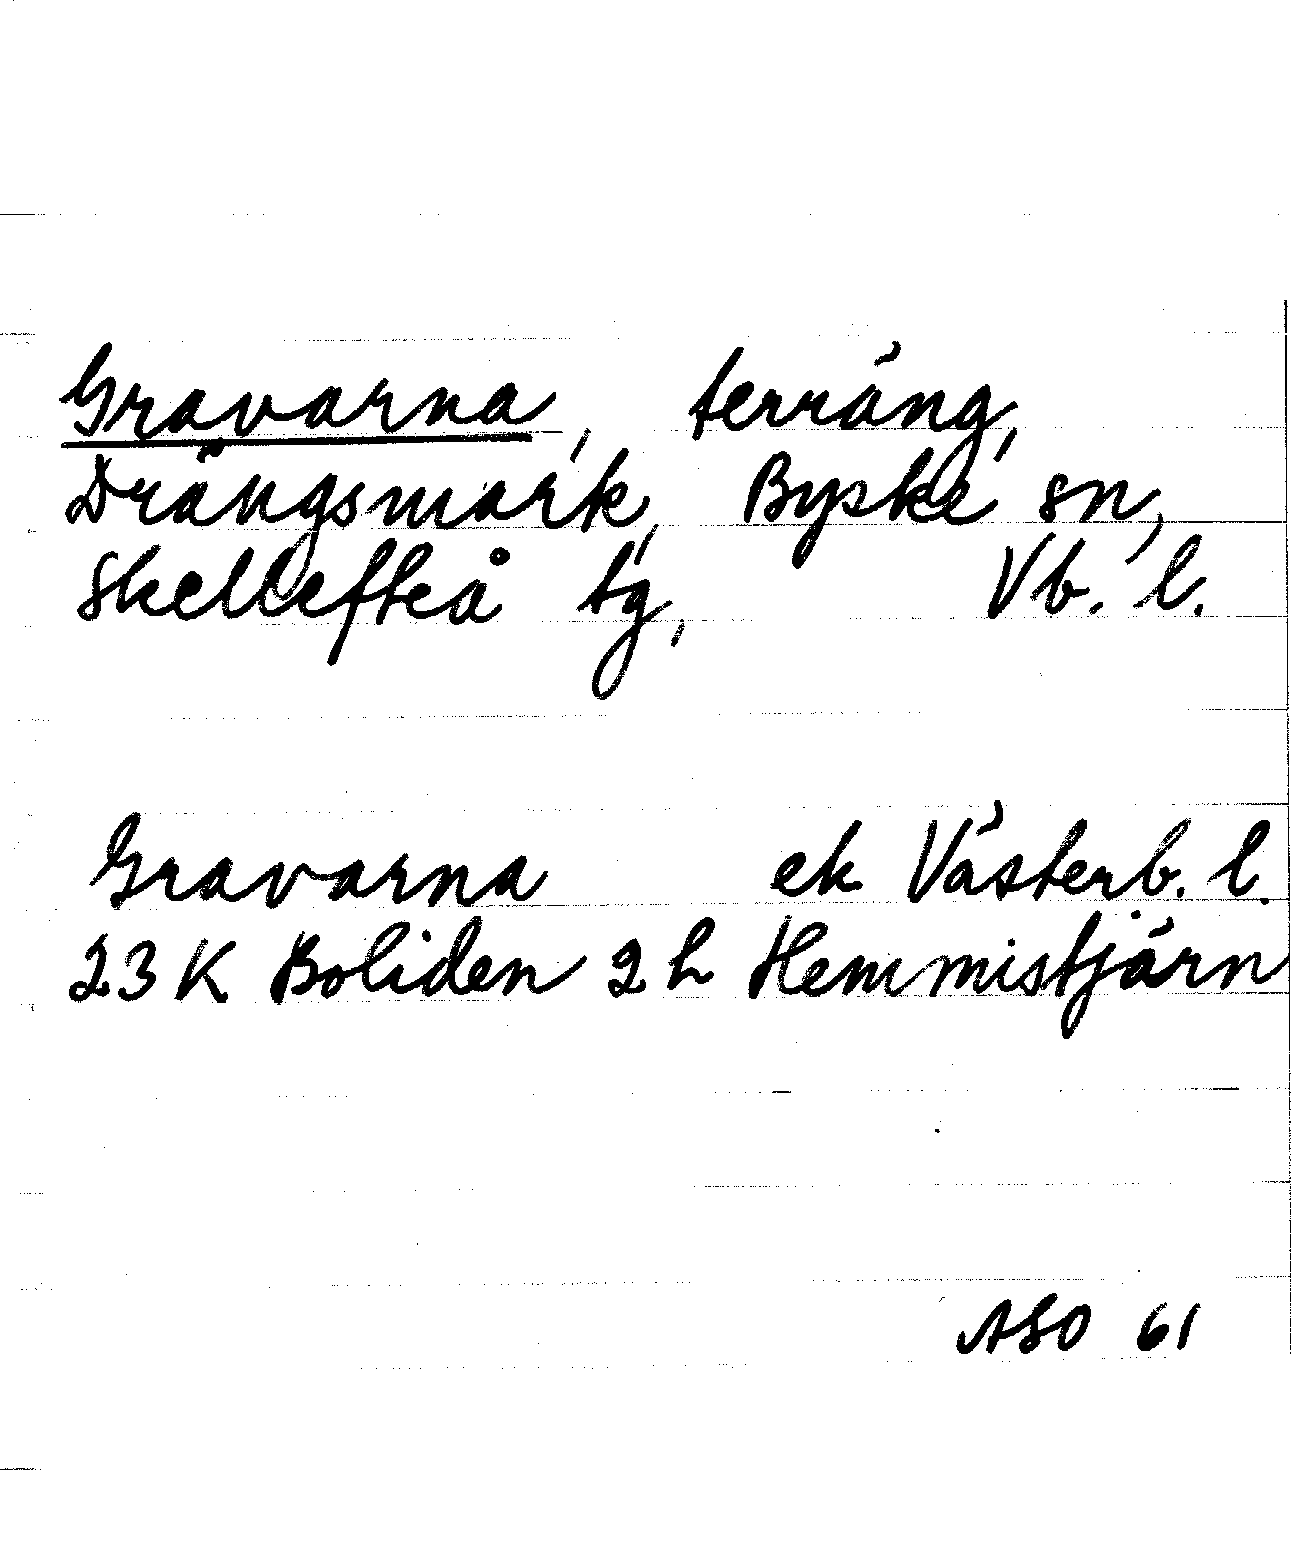 Gravarna, terräng,
Drängsmark, Byske sn,
Skellefteå tg, Vb. l.
Gravarna ek Västerb. l.
23 K Boliden 2 h Hemmistjärn
ASO 61